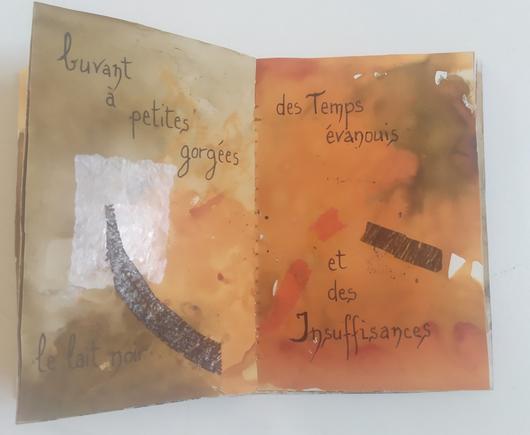 buvant
à
petites
gorgées
le lait noir
des Temps
évanouis
et
des
Insuffisances